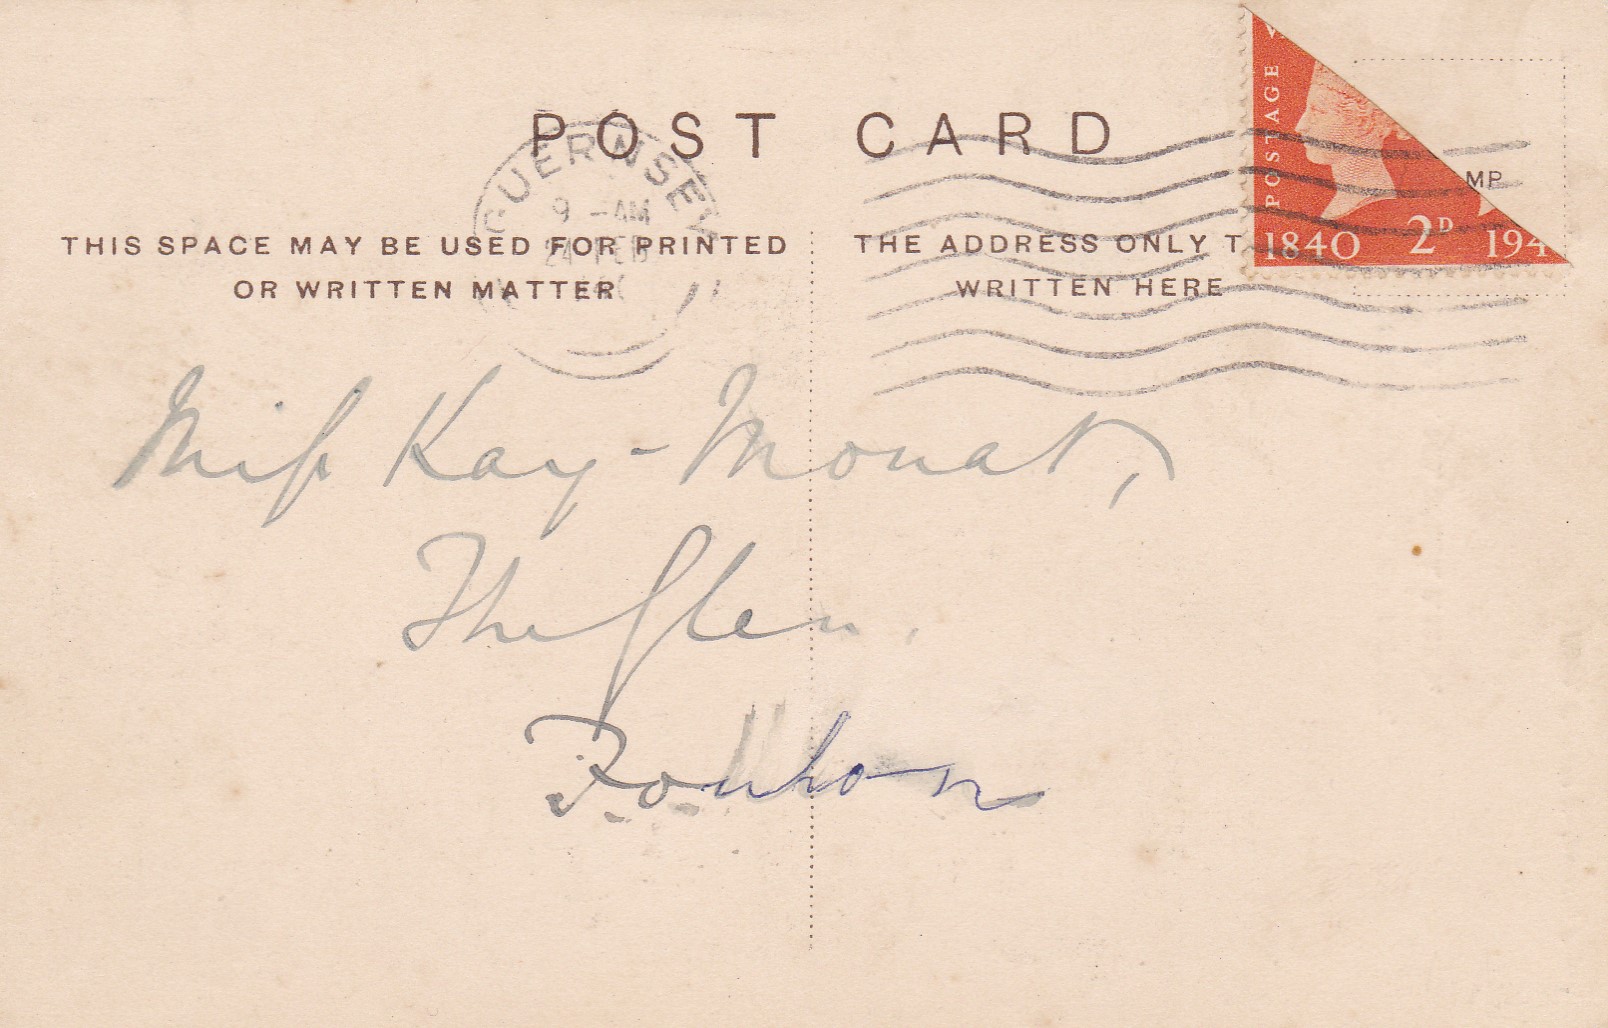 POST CARD
GUERNSEY
9 - AM
24 FEB
THIS SPACE MAY BE USED FOR PRINTED
OR WRITTEN MATTER
THE ADDRESS ONLY T
WRITTEN HERE
MP
POSTAGE
1840 2D 194
Miss Kay-Mouat,
The Glen.